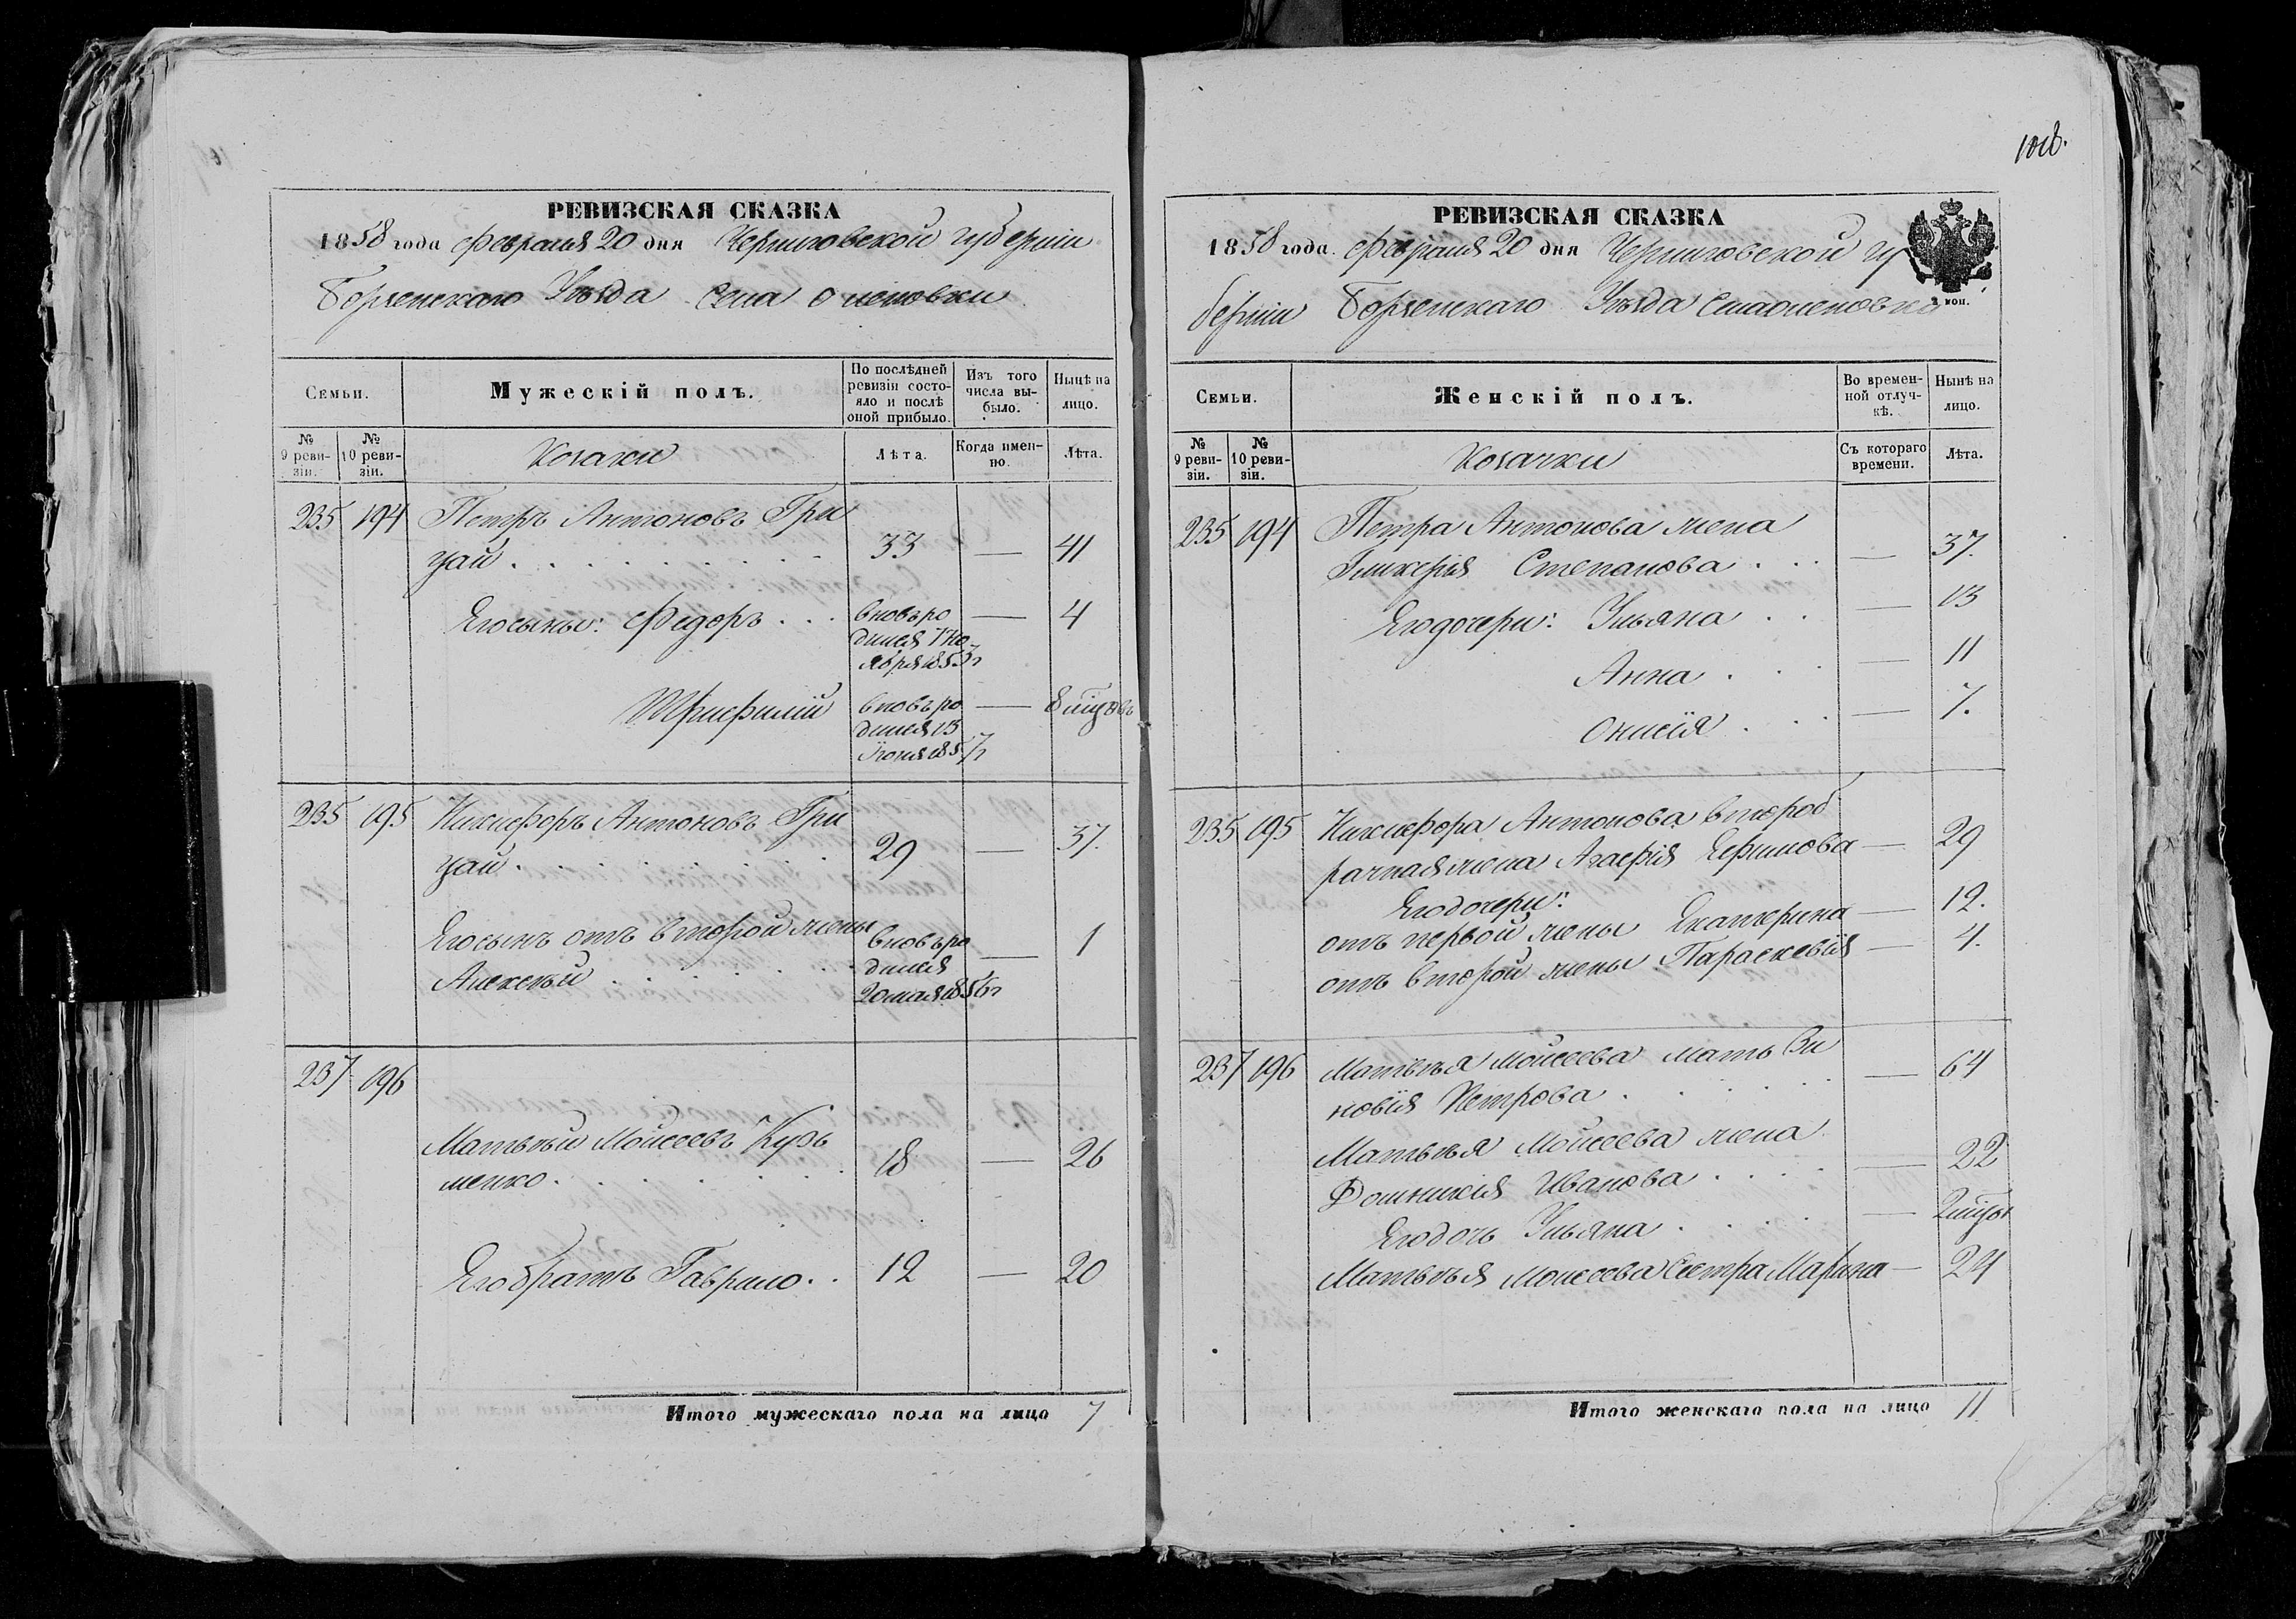 РЕВИЗСКАЯ СКАЗКА
1858 года Февраля 20 дня Черниговской губерніи
Борзенскаго Уѣзда Села Оленовки
Семьи.
Мужескій полъ.
По послѣдней ревизіи состояло и послѣ оной прибыло.
Изъ того числа выбыло.
Нынѣ на лицо.
№ 9 ревизіи.
№ 10 ревизіи.
Козаки
Лѣта.
Когда именно.
Лѣта.
235 194 Петръ Антоновъ Гри
цай 33 — 41
Его сыны: Федоръ вновь ро — 4
дился 7 Но
ября 1853 г
Трифилій вновь ро — 8 мѣсцовъ
дился 13
Іюня 1857 г
235 195 Никифоръ Антоновъ Гри
цай 29 — 37.
Его сынъ отъ второй жены вновь ро — 1
Алексѣй дился
20 мая 1856 г
237 196
Матвѣй Моисеевъ Кузь
менко 18 — 26
Его братъ Гаврило 12 — 20
Итого мужескаго пола на лицо 7
108.
РЕВИЗСКАЯ СКАЗКА
1858 года. Февраля 20 дня Черниговской гу
берніи Борзенскаго Уѣзда Села Оленовки
коп.
Семьи.
Женскій полъ.
Во временной отлучкѣ.
Нынѣ на лицо.
№ 9 ревизіи.
№ 10 ревизіи.
Козачки
Съ котораго времени.
Лѣта.
235 194 Петра Антонова жена
Гликерія Степанова — 37.
Его дочери: Ульяна — 13
Анна — 11
Онисія — 7.
235 195 Никифора Антонова второб
рачная жена Агафія Ефимова — 29
Его дочери:
отъ первой жены Екатерина — 12.
отъ второй жены Параскевія — 4.
237 196 Матвѣя Моисеева мать Зи
новія Петрова — 64
Матвѣя Моисеева жена
Домникія Иванова — 22
Его дочь Ульяна — 2 мѣсцы
Матвѣя Моисеева Сестра Марина — 24
Итого женскаго пола на лицо 11.